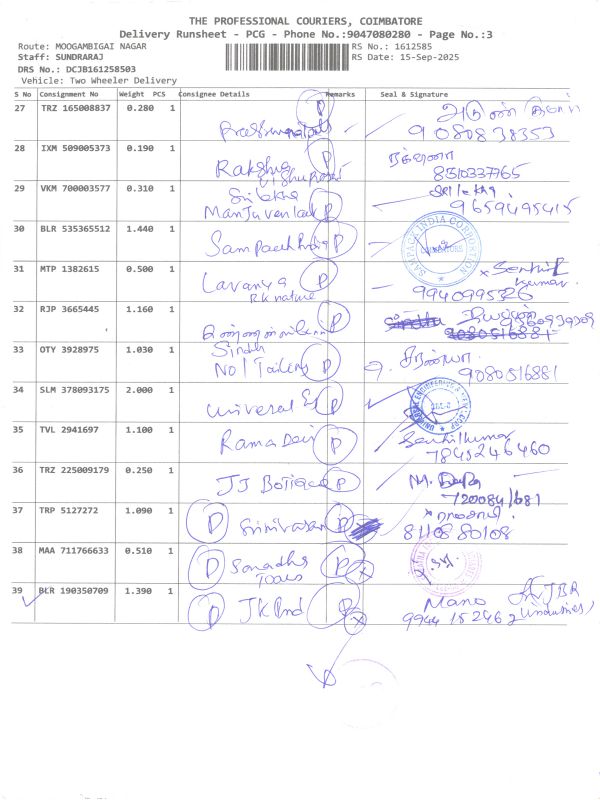 THE PROFESSIONAL COURIERS, COIMBATORE
Delivery Runsheet - PCG - Phone No.:9047080280 - Page No.:3
Route: MOOGAMBIGAI NAGAR RS No.: 1612585
Staff: SUNDRARAJ RS Date: 15-Sep-2025
DRS No.: DCJB161258503
Vehicle: Two Wheeler Delivery
S No Consignment No Weight PCS Consignee Details Remarks Seal & Signature
27 TRZ 165008837 0.280 1 P அருண்
9080838353
28 IXM 509005373 0.190 1 Rakshna P
8310337765
29 VKM 700003577 0.310 1 Srilekha P Srilekha
Manjuvenkat 9659495415
30 BLR 535365512 1.440 1 Sampack India P SAMPACK INDIA CORPORATION
31 MTP 1382615 0.500 1 Lavanya P Senthil kumar
RK nature 9940995326
32 RJP 3665445 1.160 1 P
9080516881
33 OTY 3928975 1.030 1 Sindhu P
No 1 Tailors 9080516881
34 SLM 378093175 2.000 1 Universal P
35 TVL 2941697 1.100 1 Rama Devi P Senthilkumar
7845246460
36 TRZ 225009179 0.250 1 JJ P M.
7200841681
37 TRP 5127272 1.090 1 P Srinivasan P
8110880108
38 MAA 711766633 0.510 1 P P x
39 BLR 190350709 1.390 1 P JK Ind P x Mano JBR
9944152462 Industries